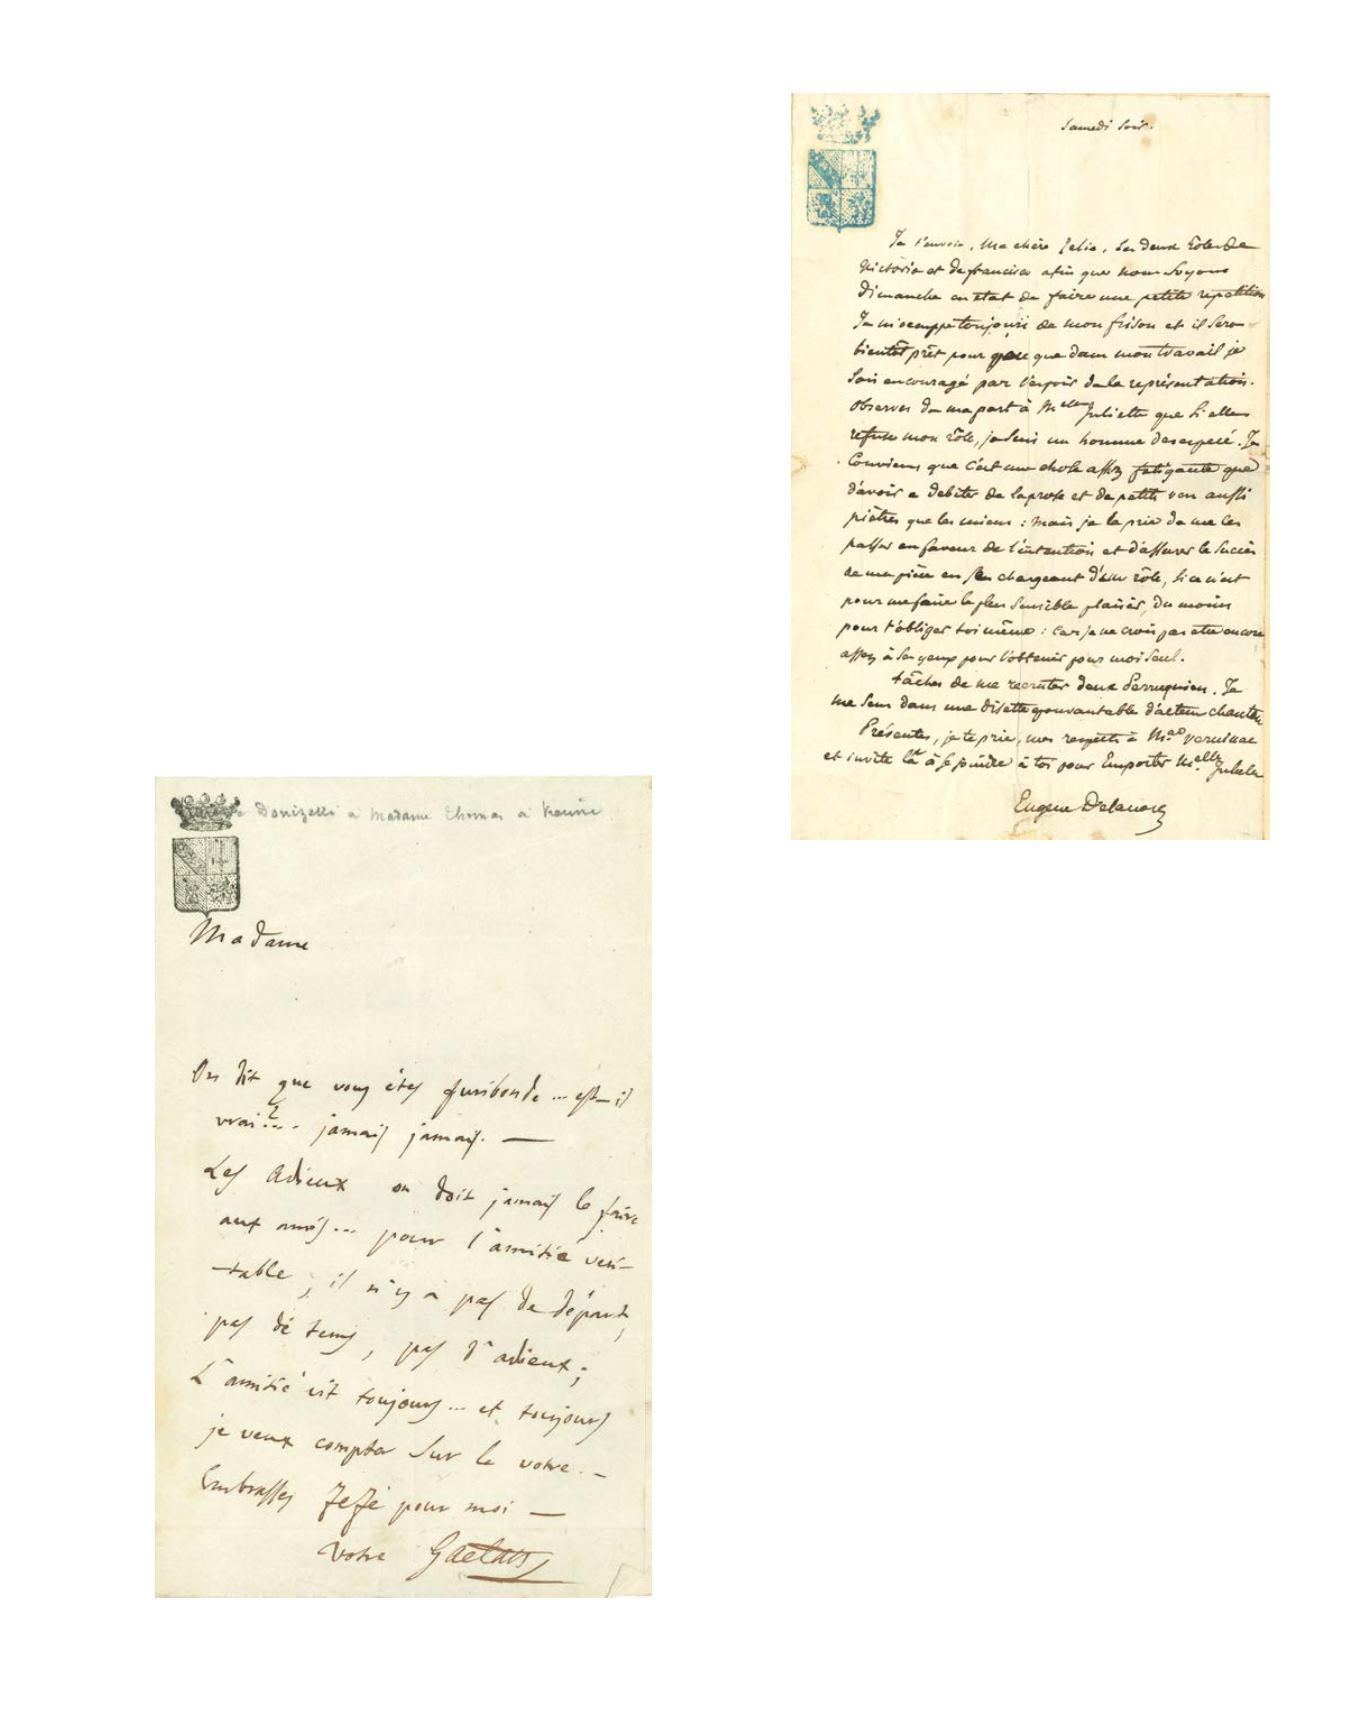 Samedi soir.
Je t'envoie, ma chère Felix, les deux rôles de
Victoria et de francisco afin que nous soyons
Dimanche en état de faire une petite repetition
Je m'occuppe toujours de mon frison et il sera
bientôt prêt pour que dans mon travail je
sois encouragé par l'espoir de la représentation.
Observes de ma part à Melle Juliette que si elle
refuse mon rôle, je suis un homme desesperé. Je
conviens que c'est une chose assez fatigante que
d'avoir a debiter de la prose et de petits vers aussi
piètres que les miens : mais je la prie de me les
passer en faveur de l'intention et d'assurer le succès
de ma pièce en se chargeant d'un rôle, si ce n'est
pour me faire le plus sensible plaisir, du moins
pour t'obliger toi même : car je ne crois pas etre encore
assez à ses yeux pour l'obtenir pour moi seul.
tâches de me recruter deux Perruquiers. Je
me sens dans une disette epouvantable d'acteurs chantans
Présentes, je te prie, mes respects à Mad Verninac
et invite la à se joindre à toi pour Emporter Melle
Eugene Delacroix
Donizetti a Madame Thomas a
Madame
On dit que vous êtes furibonde ... est-il
vrai? .. jamais jamais. —
Les Adieux on doit jamais le faire
aux amis ... pour l'amitié veri-
-table, il n'y a pas de départ,
pas dè tems, pas d'adieux ;
L'amitié vit toujours ... et toujours
je veux compter sur la votre. —
Embrassez Zezé pour moi —
Votre Gaetano